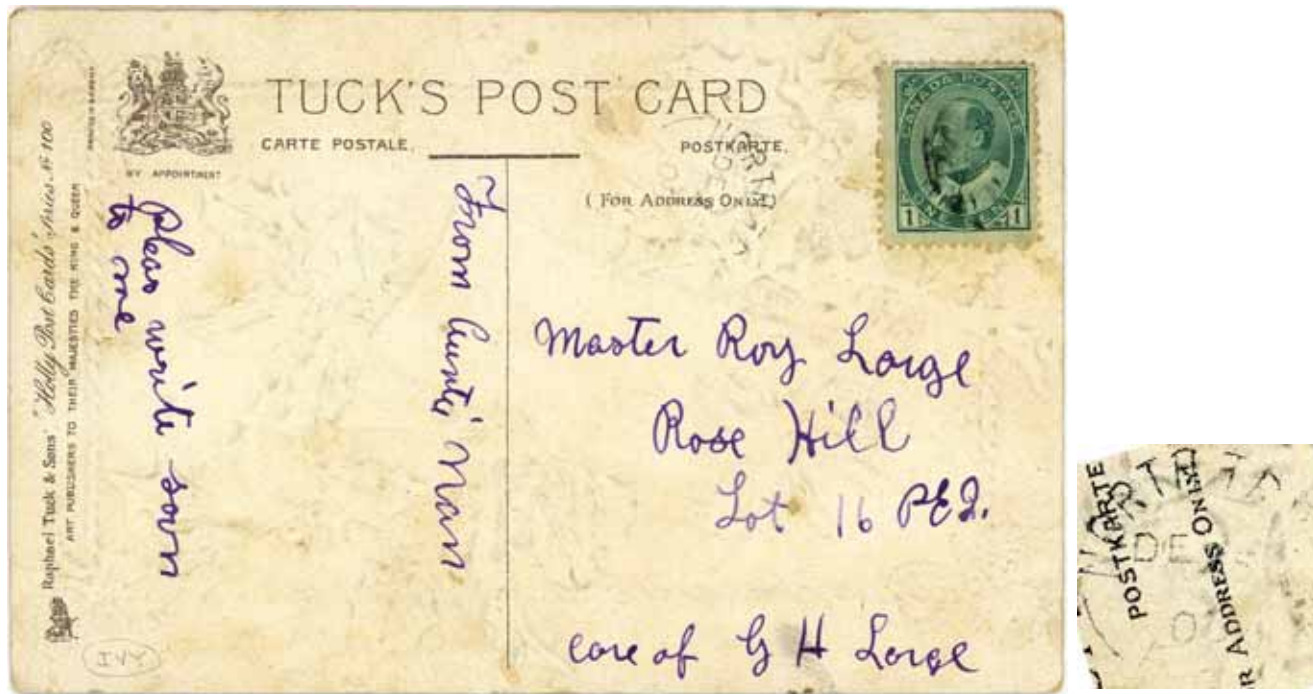 TUCK'S POST CARD
CARTE POSTALE.
POSTKARTE.
(FOR ADDRESS ONLY.)
BY APPOINTMENT
CANADA POSTAGE
1 ONE CENT 1
Raphael Tuck & Sons' "Holly Post Cards" Series No 100
ART PUBLISHERS TO THEIR MAJESTIES THE KING & QUEEN
pleas write soon
to me
From Aunti Nan
Master Roy Large
Rose Hill
Lot 16 PEI.
care of G H Large
IVY
POSTKARTE
DE
R ADDRESS ONLY.)